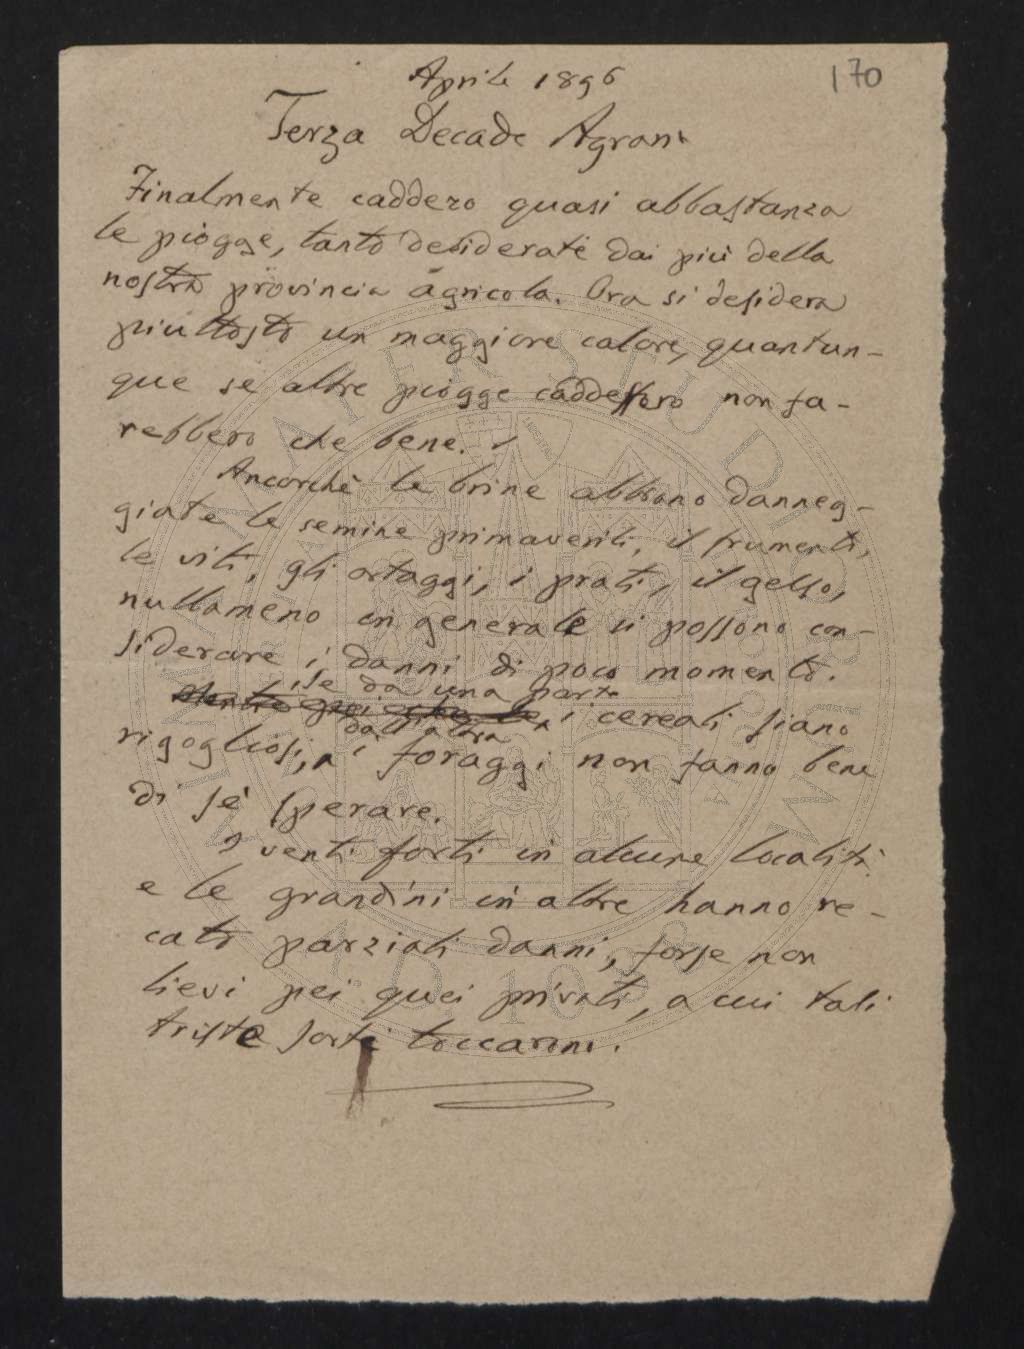 170
Aprile 1896
Terza Decade Agrari
Finalmente caddero quasi abbastanza
le piogge, tanto desiderate dai più della
nostra provincia agricola. Ora si desidera
piuttosto un maggiore calore, quantun-
que se altre piogge cadessero non fa-
rebbero che bene.
Ancorchè le brine abbiano danneg-
giate le semine primaverili, il frumento,
le viti, gli ortaggi, i prati, il gelso,
nullameno in generale si possono con-
siderare i danni di poco momento.
se da una parte
i cereali siano
dall'altra
rigogliosi, i foraggi non fanno bene
di sè sperare.
I venti forti in alcune località
e le grandini in altre hanno re-
cato parziali danni, forse non
lievi pei quei privati, a cui tali
triste sorti toccarono.
ALMA MATER STUDIORUM
A.D. 1088